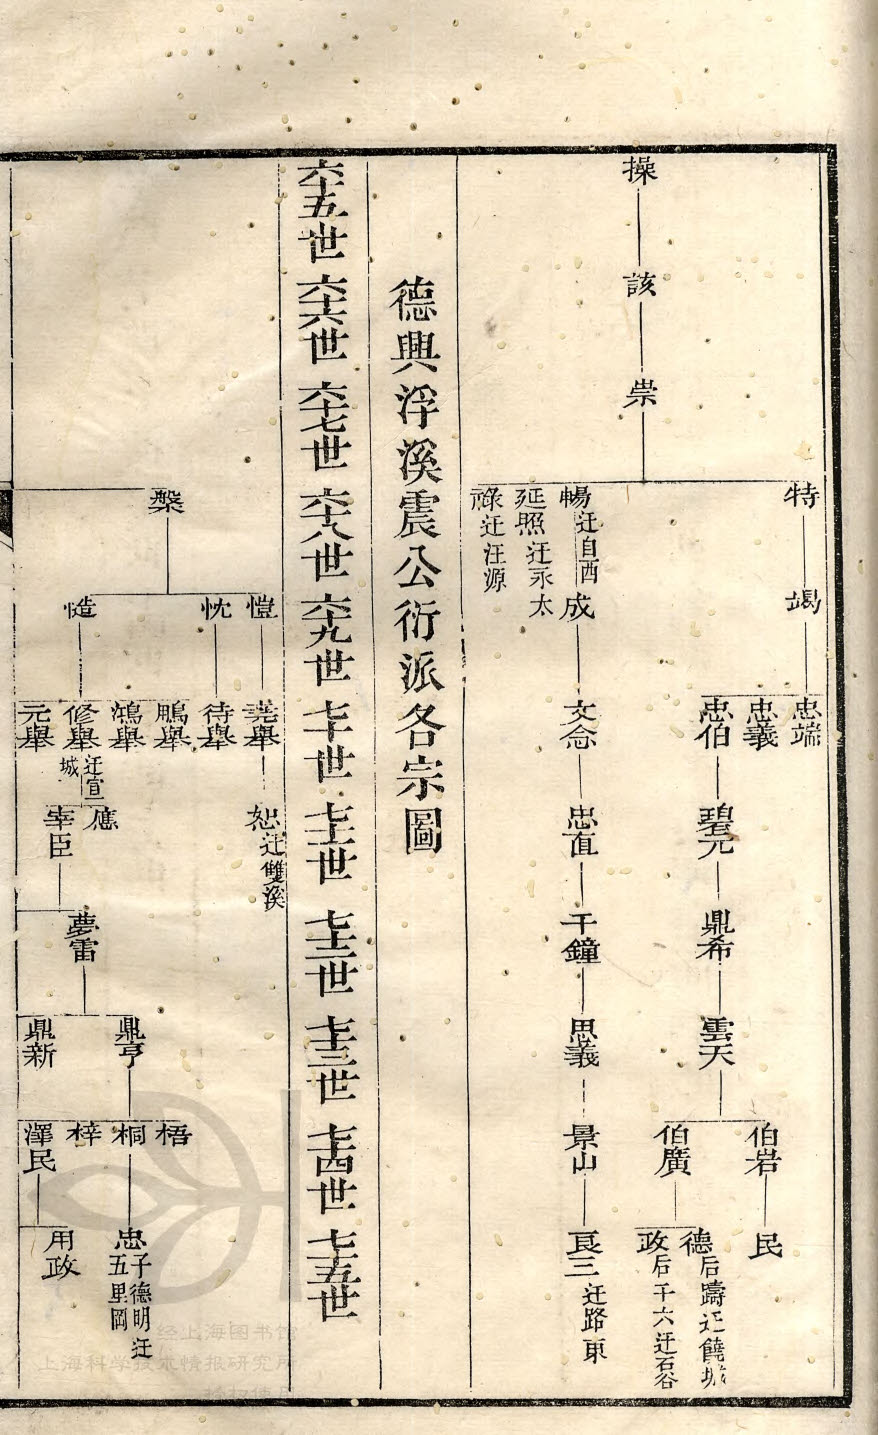 操
該
祟
特
暢 迁自西
延照 迁永太
祿 迁汪源
竭
成
忠端
忠義
忠伯
文念
碧元
忠直
鼎希
千鐘
雲天
思義
伯岩
伯廣
景山
民
德 后躊迁饒城
政 后千六迁石谷
良三 迁路東
德興浮溪震公衍派各宗圖
六十五世
六十六世
六十七世
六十八世
六十九世
七十世
七十一世
七十二世
七十三世
七十四世
七十五世
槃
愷
忱
慥
堯舉
待舉
鵬舉
鴻舉
修舉 迁宣城
元舉
恕 迁雙溪
應
宰臣
夢雷
鼎亨
鼎新
梧
桐
梓
澤民
忠 子德明迁五里岡
用政
经上海图书馆
上海科学技术情报研究所